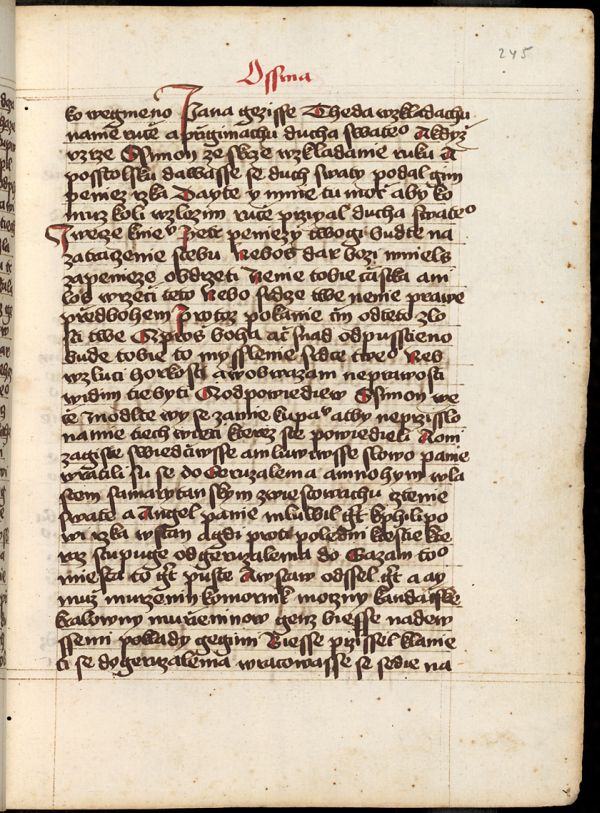 245
Ossma
ko wegmeno Jana gezisse Theda wzkladachu
nanie ruce a prigimachu ducha swateo A kdyz
vzrze Ssimon ze skrze wzkladanie ruku A
posstolsku dawasse se duch swaty podal gim
peniez rzka Dayte y mnie tu moc aby ko
muz koli wzlozim ruce przigal ducha swateo
Iwecze knie Petr peniezy twogi budte na
zatracenie stebu Nebos dar bozi mniels
zapenieze obdrzeti Nenie tobie cziastka ani
los wrzeci teto Nebo srdze twe nenie prawe
przedbohem Protoz pokanie czin odteto zlo
sti twe Czpros boha acz snad odpusstieno
bude tobie to myssllenie srdce tweo Neb
wzluci horkosti awobwazani neprawosti
widim tie byti Odpowiediew Ssimon we
ce modlte wy se zamie kupa aby neprzisslo
namie tiech wieci kterez ste powiedieli A oni
zagiste swiedcziwsse amluwiwsse slowo panie
wratili su se do Geruzalema amnohym wla
stem samarytanskym zwiestowachu cztenie
swate a Angel panie mluwil gt kphilipo
wi rzka wstan agdi proti poledni kcestie kte
raz stupuge odgeruzalema do Gazam too
miesta to gt puste A wstaw odssel gt a ay
muz murzenin komornik moczny kandacske
kralowny murzeninow genz biesse nadew
ssemi poklady gegimi Biesse przissel klanie
ti se dogeruzalema wracowasse se sedie na